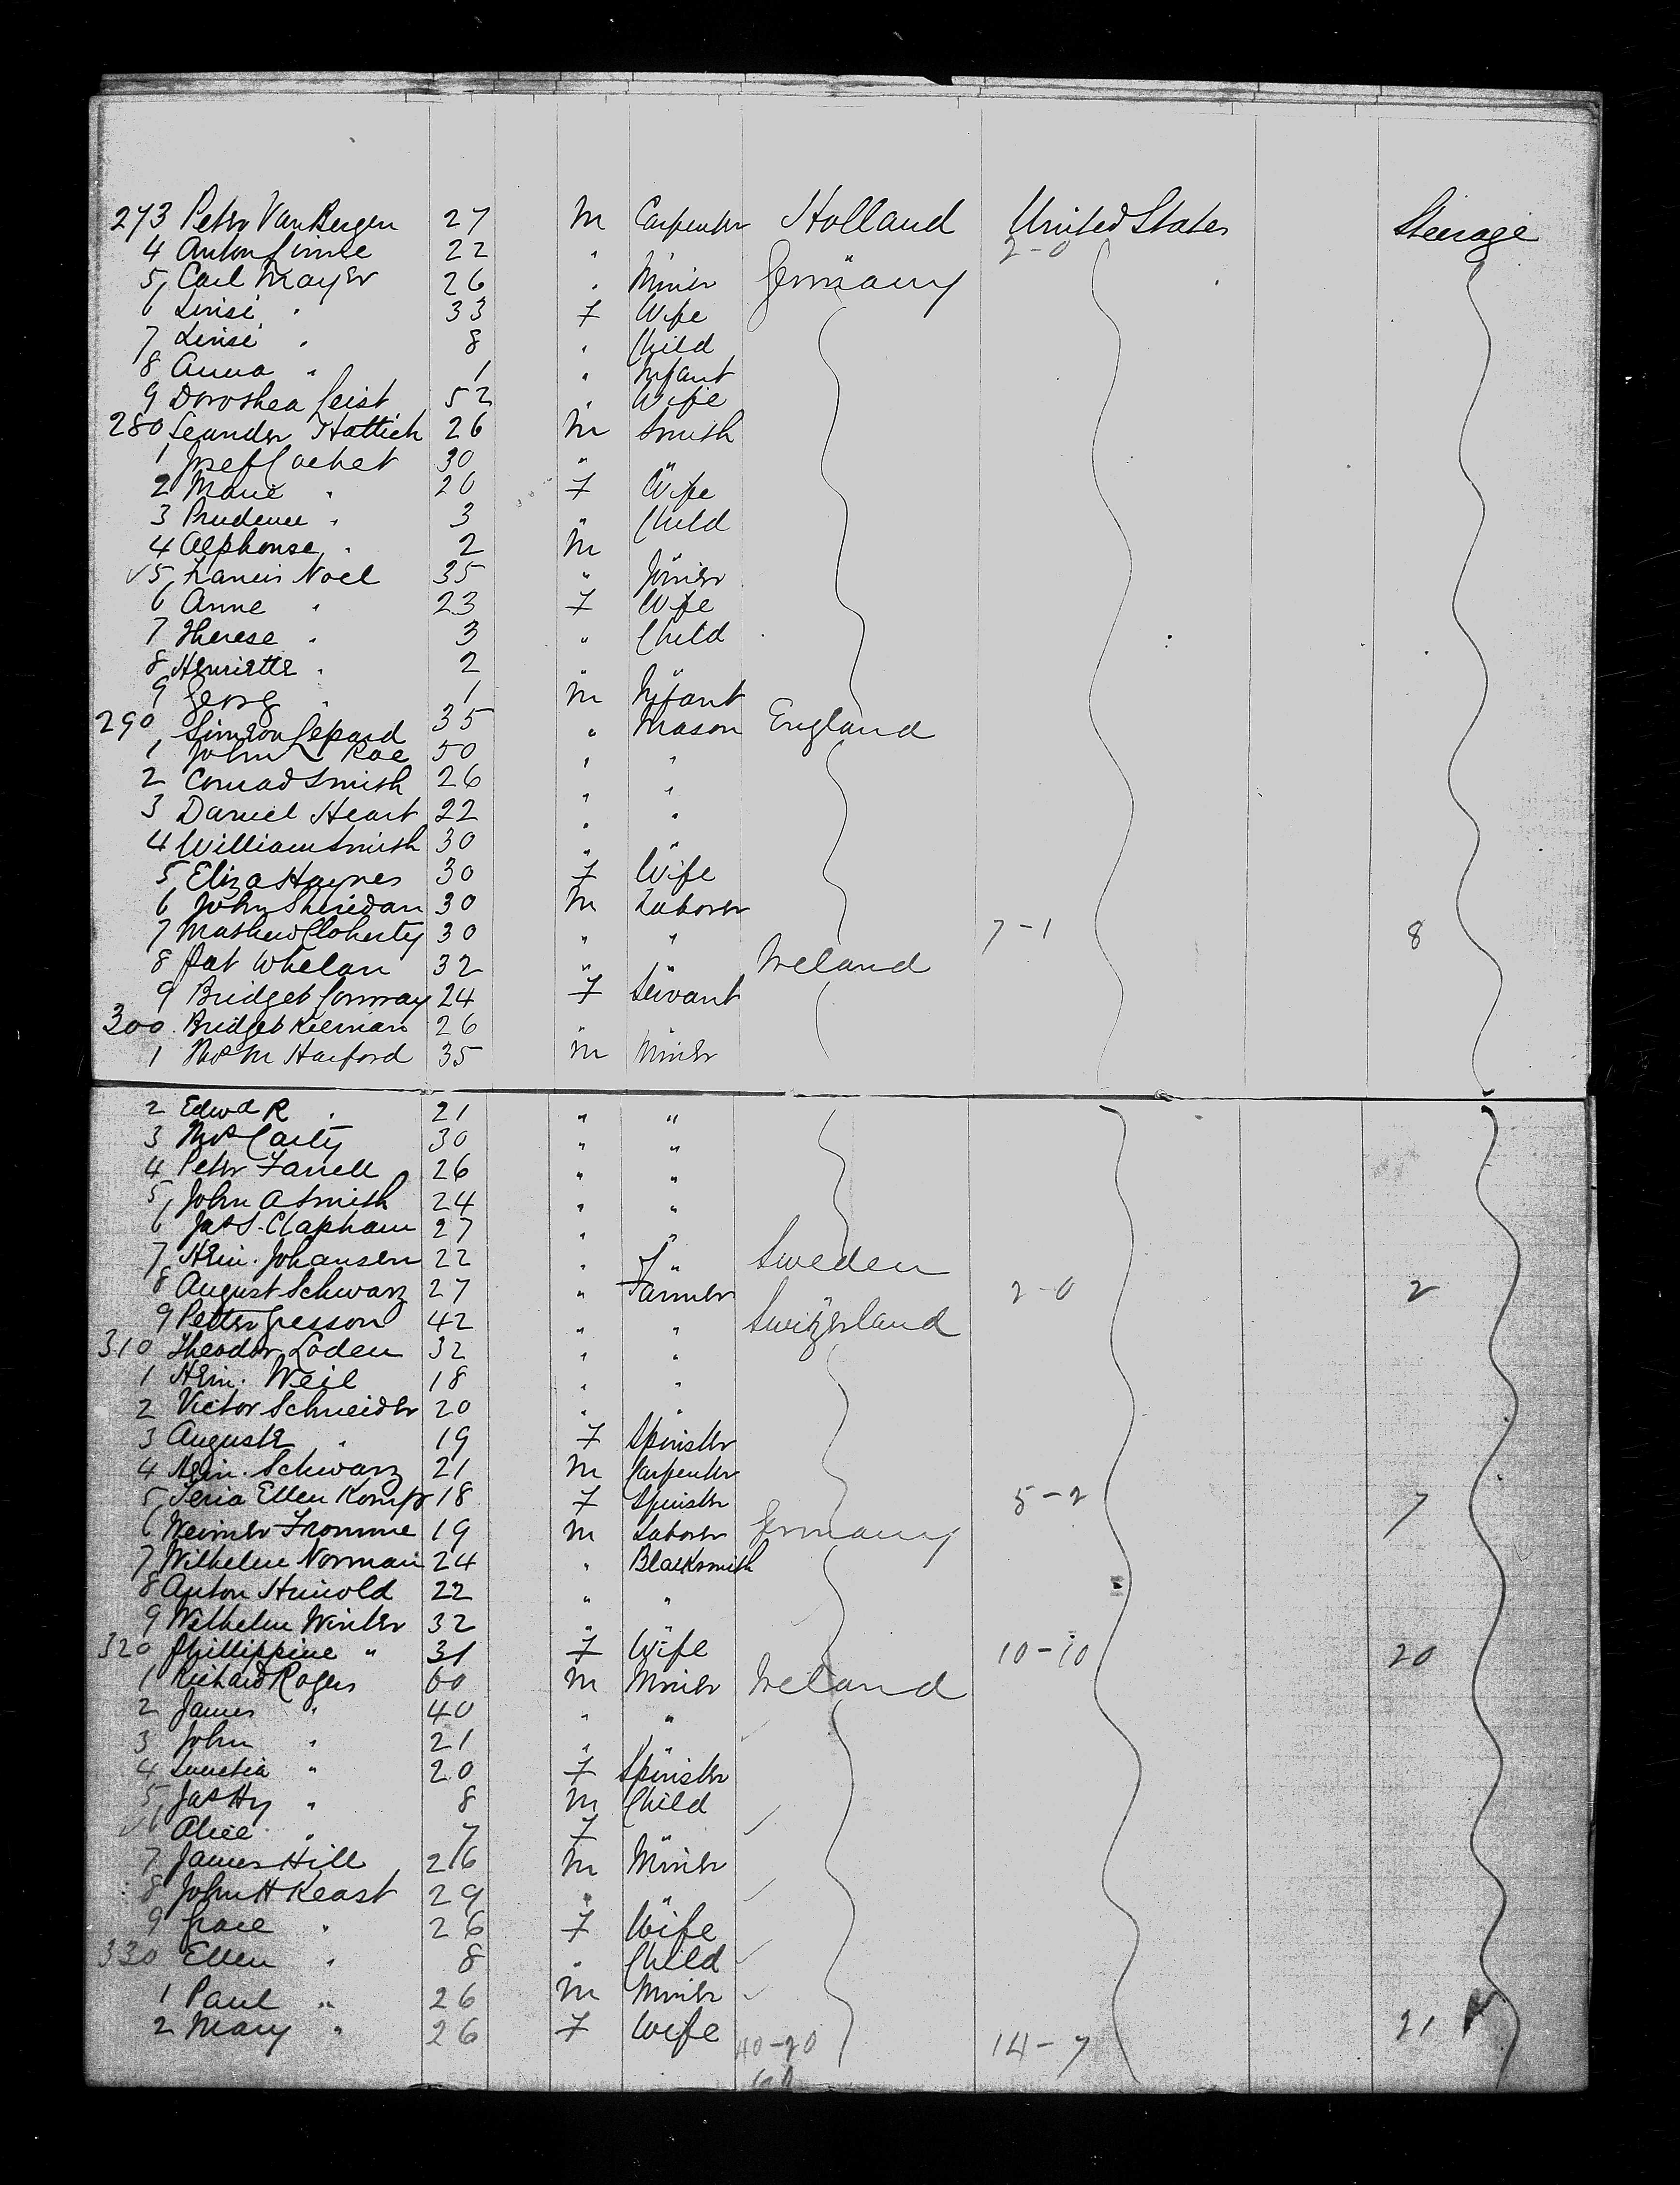 273 Peter Van Bergen 27 M Carpenter Holland United States Steerage
4 Anton 22 " " 2-0
5 Carl Mayer 26 " Miner Germany
6 Linise " 33 F Wife
7 Linise " 8 " Child
8 Anna " 1 " Infant
9 Dorothea Geist 52 " Wife
280 Leander Hattich 26 M Smith
1 Josef Cachet 30 " "
2 Marie " 20 F Wife
3 Prudence " 3 " Child
4 Alphonse " 2 M
5 Francis Noel 35 " Joiner
6 Anne " 23 F Wife
7 Therese " 3 " Child
8 Henriette " 2
9 Georg " 1 M Infant
290 Simeon Lepard 35 " Mason England
1 John Rae 50 " "
2 Conrad Smith 26 " "
3 Daniel Heart 22 " "
4 William Smith 30 " "
5 Eliza Haynes 30 F Wife
6 John Sheridan 30 M Laborer
7 Mathew Cloherty 30 " " 7-1 8
8 Pat Whelan 32 " " Ireland
9 Bridget Conway 24 F Servant
300 Bridget Kiernan 26 " "
1 Thos M Harford 35 M Miner
2 Edwd R " 21 " "
3 Thos Carty 30 " "
4 Peter Farrell 26 " "
5 John A Smith 24 " "
6 Jas S. Clapham 27 " "
7 Hein. Johansen 22 " " Sweden
8 August Schwarz 27 " Farmer 2-0 2
9 Petter Gresson 42 " " Switzerland
310 Theodor Loden 32 " "
1 Hein. Weil 18 " "
2 Victor Schneider 20 " "
3 Auguste " 19 F Spinster
4 Hein. Schwarz 21 M Carpenter
5 Ellen 18 F Spinster 5-2 7
6 Weimer Fromme 19 M Laborer Germany
7 Wilhelm Norman 24 " Blacksmith
8 Anton Heinold 22 " "
9 Wilhelm Winter 32 " "
320 Phillippine " 31 F Wife 10-10 20
1 Richard Rogers 60 M Miner Ireland
2 James " 40 " "
3 John " 21 " "
4 Lucretia " 20 F Spinster
5 Jas Hy " 8 M Child
6 Alice " 7 F
7 James Hill 26 M Miner
8 John H Keast 29 " "
9 Grace " 26 F Wife
330 Ellen " 8 " Child
1 Paul " 26 M Miner
2 Mary " 26 F Wife 40-20 14-7 21